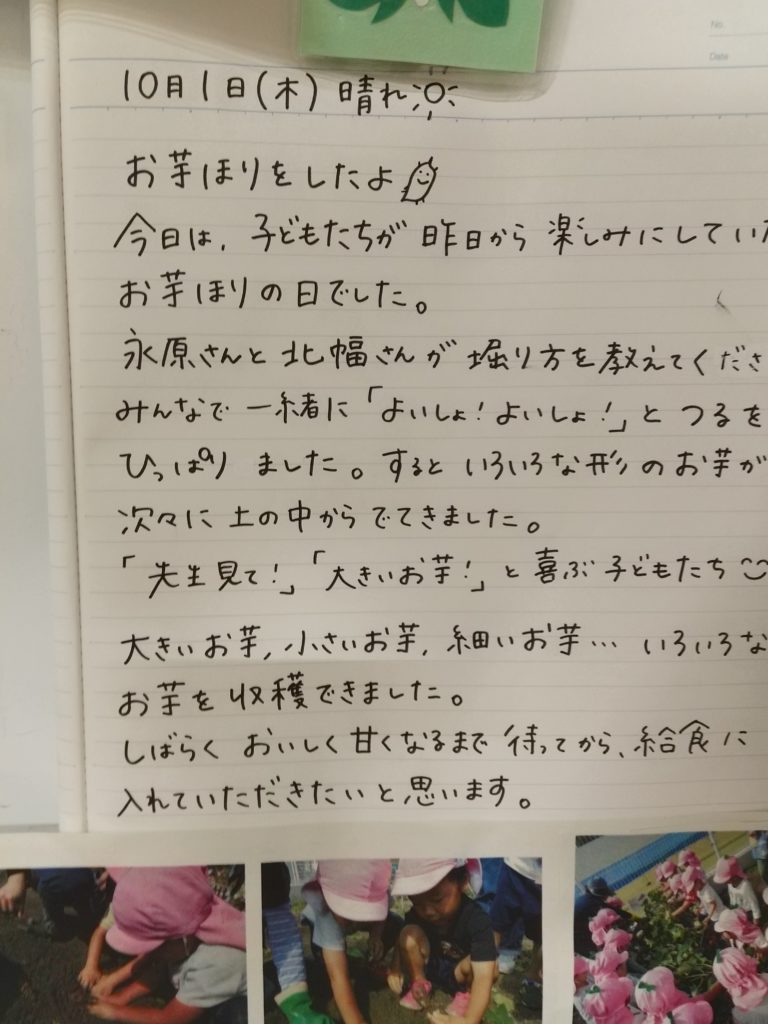 No.
Date
10月1日(木) 晴れ
お芋ほりをしたよ
今日は、子どもたちが昨日から楽しみにしていた
お芋ほりの日でした。
永原さんと北幅さんが堀り方を教えてくださ
みんなで一緒に「よいしょ!よいしょ!」とつるを
ひっぱりました。するといろいろな形のお芋が
次々に土の中からでてきました。
「先生見て!」「大きいお芋!」と喜ぶ子どもたち
大きいお芋,小さいお芋,細いお芋…いろいろな
お芋を収穫できました。
しばらくおいしく甘くなるまで待ってから、給食に
入れていただきたいと思います。